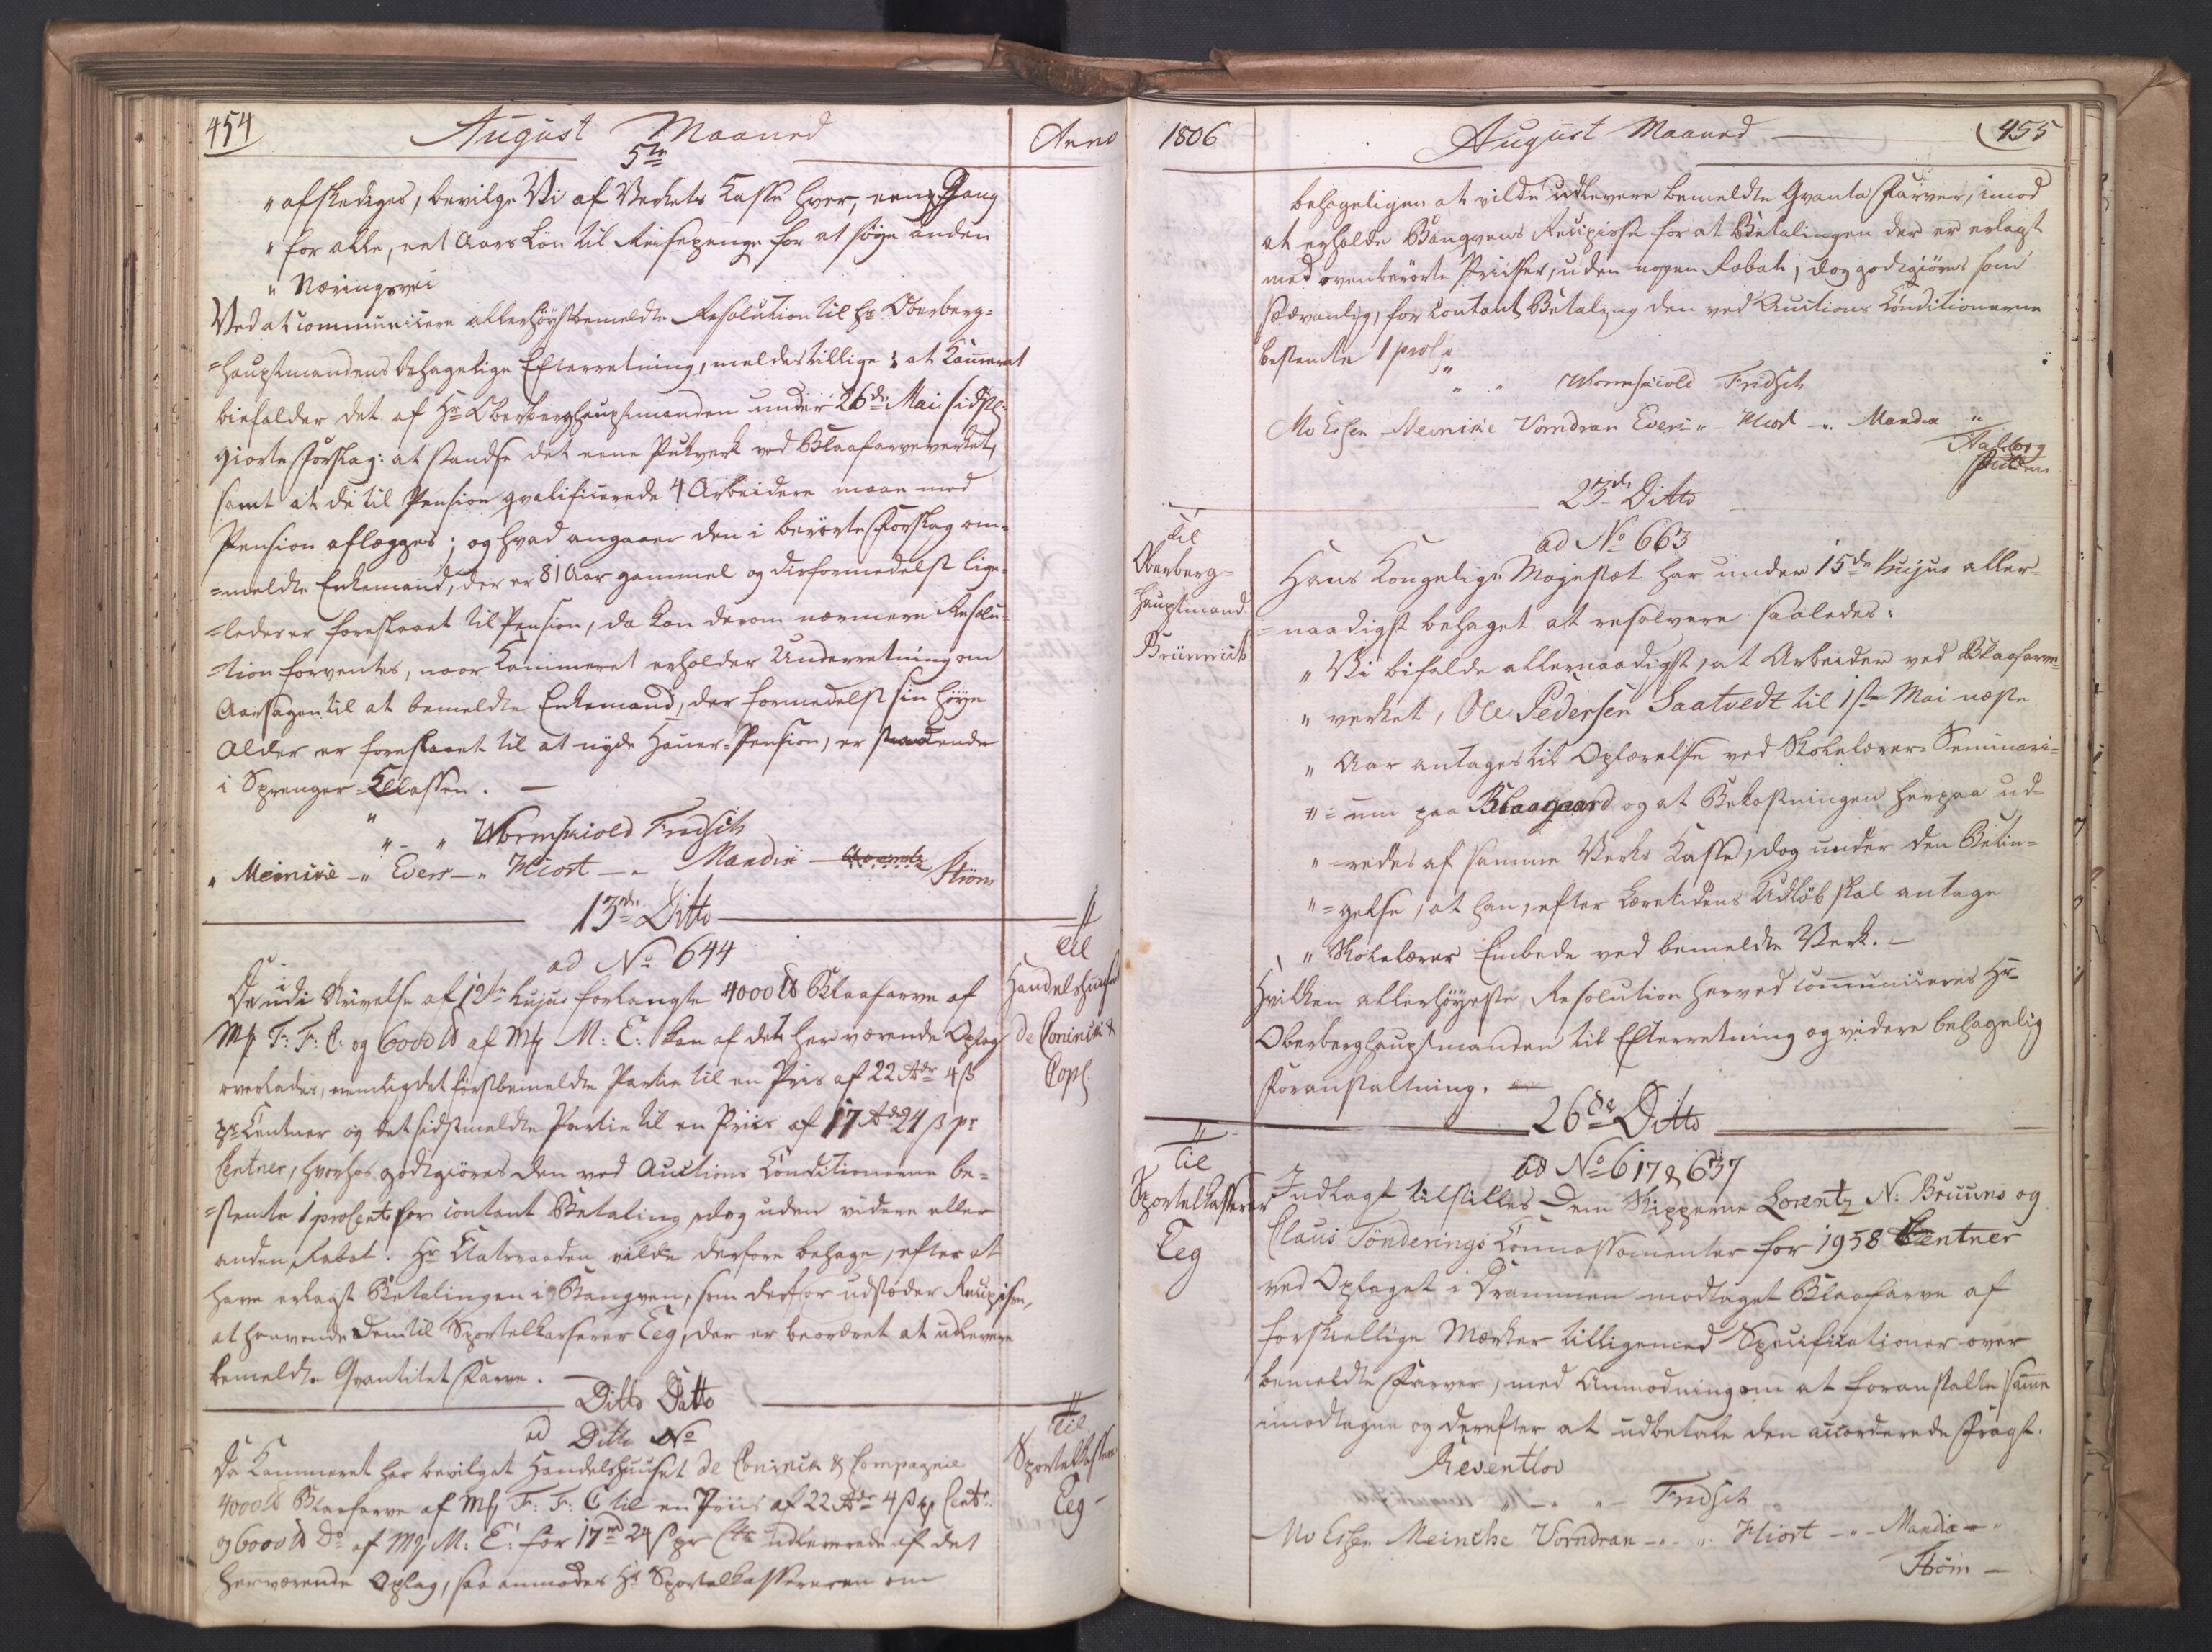 454
August Maaned
Anno
5te
" afskediges, bevilge Vi af Verkets Kasse hver, een Gang
" for alle, eet Aars Løn til Reisepenge for at søge anden
" Næringsvei
Ved at communicere allerhøystbemeldte Resolution til Hr Oberberg=
=hauptmandens behagelige Efterretning, meldes tillige: at Kammeret
biefalder det af Hr Oberberghauptmanden under 26de Maii sidstl:
giorte Forslag: at standse det eene Pukverk ved Blaafarveverket,
samt at de til Pension qvalificerede 4 Arbeidere maae med
Pension aflægges; og hvad angaaer den i berørte Forslag om=
=meldte Enkemand, der er 81 Aar gammel og derformedelst lige=
=ledes er foreslaaet til Pension, da kan derom nærmere Resolu=
=tion forventes, naar Kammeret erholder Underretning om
Aarsagen til at bemeldte Enkemand, der formedelst sin høye
Alder er foreslaaet til at nyde Hauer-Pension, er staaende
i Sprenger-Classen. —
" - " Wormskiold Fridsch
" Meinike - " Evers - " Hiort - " Mandix - Strøm
13de Ditto
ad No 644
Til
Handelshuuset
de Coninck &
Comp.
De udi Skrivelse af 12te hujus forlangte 4000 ℔ Blaafarve af
Mk F: F: C: og 6000 ℔ af Mk M: C: kan af det herværende Oplag
overlades, nemlig det førstbemeldte Partie til en Priis af 22 Rdr 4 ß
pr Centner og det sidstmeldte Partie til en Priis af 17 Rd 24 ß pr
Centner, hvorhos godtgiøres den ved Auctions Conditionerne be=
=stemte 1 proCento for contant Betaling, dog uden videre eller
anden Rabat. Hr Etatsraaden vilde derfore behage, efter at
have erlagt Betalingen i Banqven, som derfor udstæder Recipisse,
at henvende Dem til Sportelkasserer Eeg, der er beordret at udlevere
bemeldte Qvantitet Farve.
Ditto Ditto
ad Ditto No
Til
Sportelkasserer
Eeg
Da Kammeret har bevilget Handelshuuset de Coninck & Compagnie
4000 ℔ Blaafarve af Mk F: F: C til en Priis af 22 Rdr 4 ß pr Centr
og 6000 ℔ Do af Mk M: C: for 17 rd 24 ß pr Ctr udleverede af det
herværende Oplag, saa anmodes Hr Sportelkassereren om
1806
August Maaned
455
behageligen at vilde udlevere bemeldte Qvanta Farver, imod
at erholde Banqvens Recipisse for at Betalingen der er erlagt
med ovenberørte Priiser, uden nogen Rabat, dog godtgiøres som
sædvanlig, for contant Betaling den ved Auctions Conditionerne
bestemte 1 proC.
" " Wormskiold Fridsch
Mv Essen Meinike Vorndran Evers " - Hiort - " Mandix "
Aalborg
23de Ditto
ad No 663
Til
Oberberg=
=hauptmand
Brünnich
Hans Kongelige Majestæt har under 15de hujus aller=
=naadigst behaget at resolvere saaledes:
" Vi bifalde allernaadigst, at Arbeider ved Blaafarve=
" verket, Ole Pedersen Saatvedt til 1ste Mai næste
" Aar antages til Oplærelse ved Skolelærer-Seminari=
" =um paa Blaagaard og at Bekostningen herpaa ud=
" redes af samme Verks Kasse, dog under den Betin=
" =gelse, at han, efter Læretidens Udløb skal antage
" Skolelærer Embede ved bemeldte Verk. —
Hvilken allerhøyeste Resolution herved communiceres Hr
Oberberghauptmanden til Efterretning og videre behagelig
Foranstaltning.
26de Ditto
ad No 617 & 637
Til
Sportelkasserer
Eeg
Indlagt tilstilles Dem Skipperne Lorentz N: Bruuns og
Claus Tønderings Connossementer for 1958 Centner
ved Oplaget i Drammen modtaget Blaafarve af
forskiellige Mærker tilligemed Specificationer over
bemeldte Farver, med Anmodning om at foranstalte samme
imodtagne og derefter at udbetale den accorderede Fragt.
Reventlov
" - " - Fridsch
Mv Essen Meinche Vorndran - " - " Hiort - " - Mandix - "
Strøm —